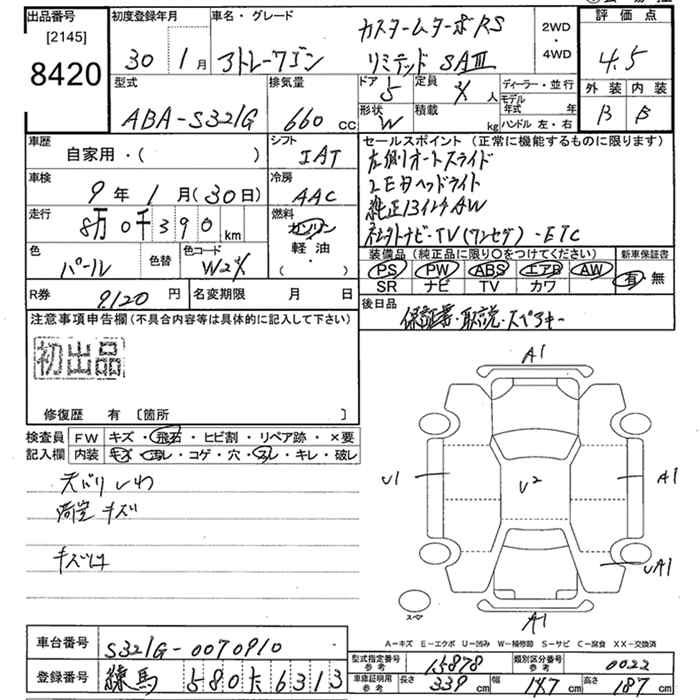 出品番号
[2145]
8420
初度登録年月
30 1月
車名・グレード
カスタムターボRS
アトレーワゴン リミテッド SAⅢ
2WD・4WD
評価点
4.5
外装 内装
B B
型式
ABA-S321G
排気量
660 cc
ドア 5
定員 4 人
形状 W
積載 kg
ディーラー・並行
モデル年式 年
ハンドル 左・右
車歴
自家用・( )
シフト
IAT
車検
9年 1月(30日)
冷房
AAC
走行
8万0千390km
燃料
ガソリン
軽油
( )
色
パール
色替
色コード
W24
R券
9,120円
名変期限 月 日
セールスポイント(正常に機能するものに限ります)
左側オートスライド
LEDヘッドライト
純正13インチAW
TV(ワンセグ)・ETC
装備品(純正品に限り○をつけてください)
PS PW ABS エアB AW
SR ナビ TV カワ
新車保証書
有・無
後日品
保証書・取説・スペアキー
注意事項申告欄(不具合内容等は具体的に記入して下さい)
初出品
修復歴 有 〔箇所 〕
検査員記入欄
FW キズ・飛石・ヒビ割・リペア跡・×要
内装 キズ・汚レ・コゲ・穴・スレ・キレ・破レ
天バリシワ
荷室キズ
A1
U1
U2
A1
UA1
スペア
A1
A-キズ E-エクボ U-凹み W-補修跡 S-サビ C-腐食 XX-交換済
車台番号
S321G-0070910
登録番号
練馬 580 た 6313
型式指定番号
参考
15878
類別区分番号
参考
0022
車庫証明用
参考
長さ 339 cm
幅 147 cm
高さ 187 cm